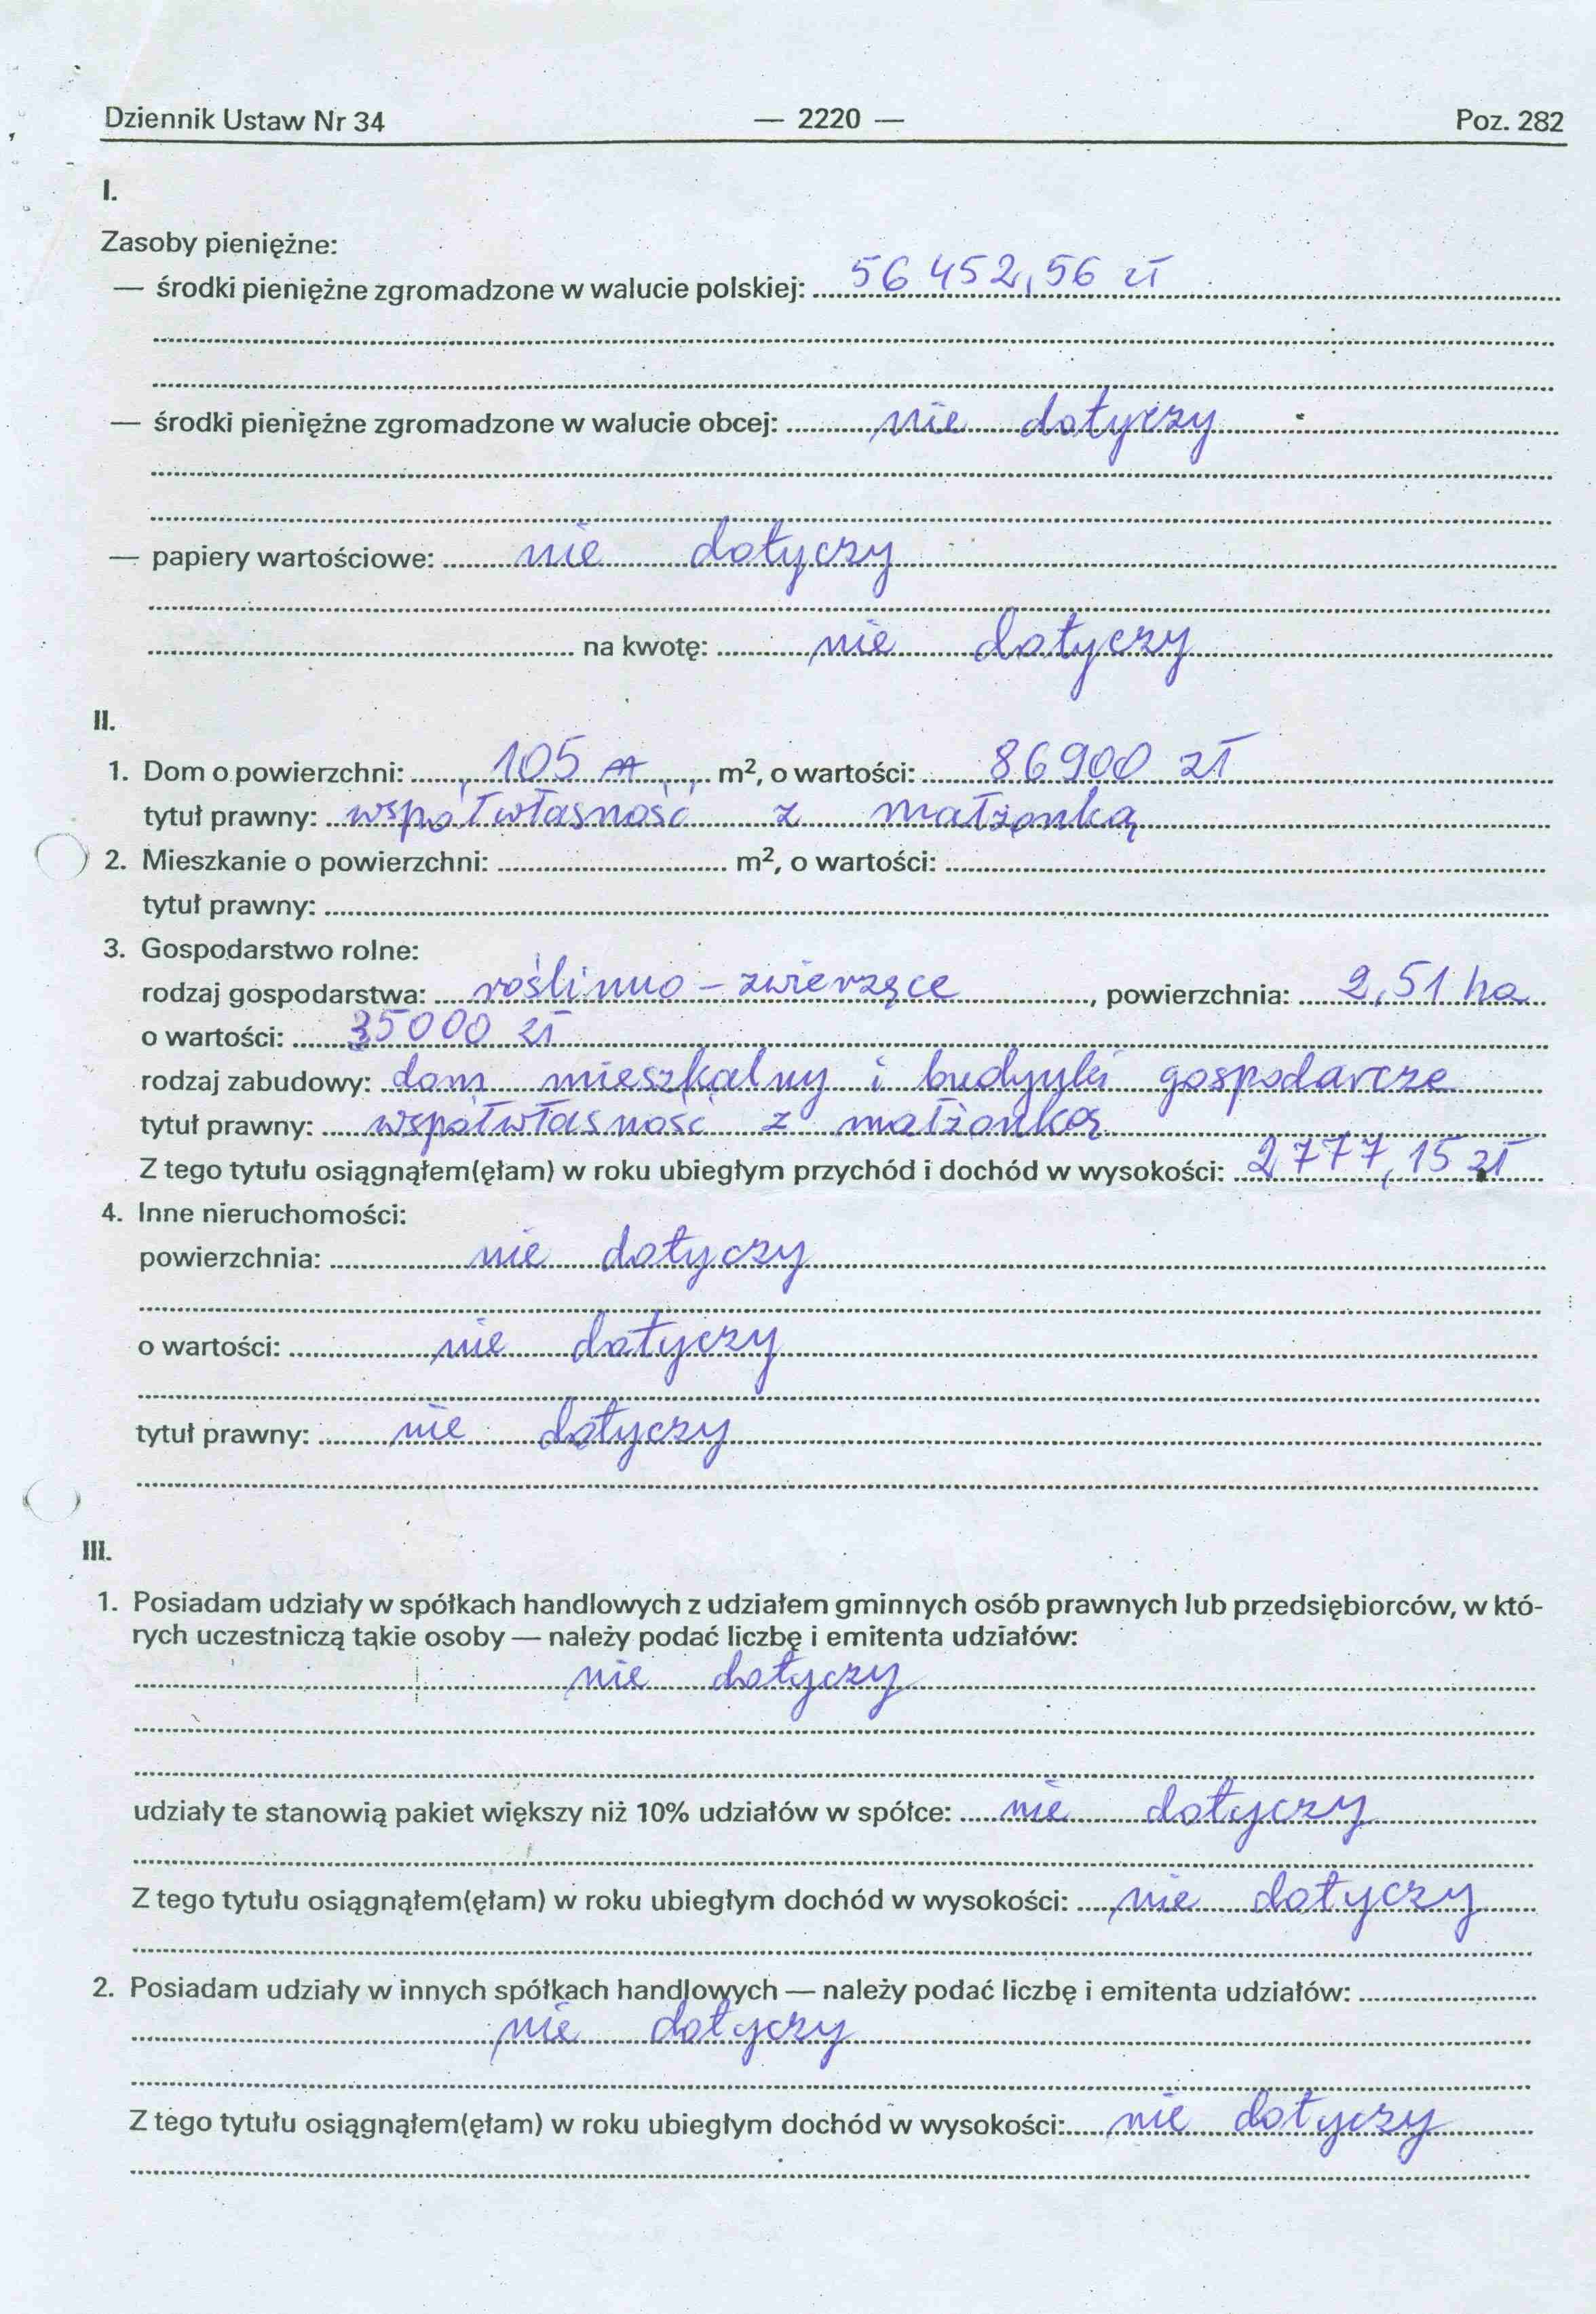 Dziennik Ustaw Nr 34 — 2220 — Poz. 282
I.
Zasoby pieniężne:
— środki pieniężne zgromadzone w walucie polskiej: 56 452,56 zł
— środki pieniężne zgromadzone w walucie obcej: nie dotyczy
— papiery wartościowe: nie dotyczy
na kwotę: nie dotyczy
II.
1. Dom o powierzchni: 105 m², o wartości: 86900 zł
tytuł prawny: współwłasność z małżonką
2. Mieszkanie o powierzchni: m², o wartości:
tytuł prawny:
3. Gospodarstwo rolne:
rodzaj gospodarstwa: roślinno - zwierzęce, powierzchnia: 2,51 ha
o wartości: 35000 zł
rodzaj zabudowy: dom mieszkalny i budynki gospodarcze
tytuł prawny: współwłasność z małżonką
Z tego tytułu osiągnąłem(ęłam) w roku ubiegłym przychód i dochód w wysokości: 2777,15 zł
4. Inne nieruchomości:
powierzchnia: nie dotyczy
o wartości: nie dotyczy
tytuł prawny: nie dotyczy
III.
1. Posiadam udziały w spółkach handlowych z udziałem gminnych osób prawnych lub przedsiębiorców, w któ-
rych uczestniczą takie osoby — należy podać liczbę i emitenta udziałów:
nie dotyczy
udziały te stanowią pakiet większy niż 10% udziałów w spółce: nie dotyczy
Z tego tytułu osiągnąłem(ęłam) w roku ubiegłym dochód w wysokości: nie dotyczy
2. Posiadam udziały w innych spółkach handlowych — należy podać liczbę i emitenta udziałów:
nie dotyczy
Z tego tytułu osiągnąłem(ęłam) w roku ubiegłym dochód w wysokości: nie dotyczy